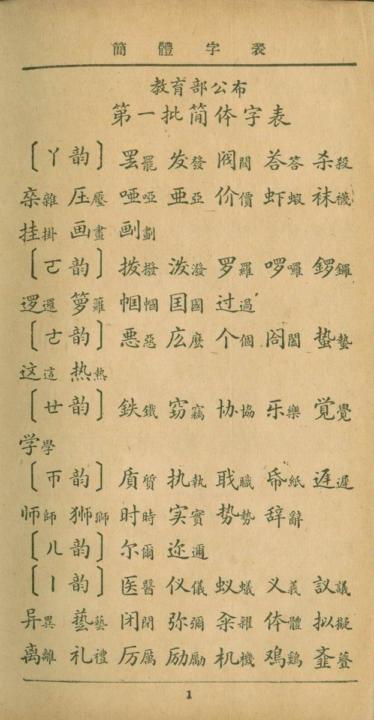 簡體字表
教育部公布
第一批简体字表
〔ㄚ韵〕 罢罷 发發 阀閥 荅答 杀殺
杂雜 压壓 唖啞 亜亞 价價 虾蝦 袜襪
挂掛 画畫 㓰劃
〔ㄛ韵〕 拨撥 泼潑 罗羅 啰囉 锣鑼
逻邏 箩籮 帼幗 囯國 过過
〔ㄜ韵〕 悪惡 庅麼 个個 阁閣 蛰蟄
这這 热熱
〔ㄝ韵〕 鉄鐵 窃竊 协協 乐樂 覚覺
学學
〔ㄭ韵〕 质質 执執 职職 帋紙 迟遲
师師 狮獅 时時 实實 势勢 辞辭
〔ㄦ韵〕 尔爾 迩邇
〔ㄧ韵〕 医醫 仪儀 蚁蟻 义義 议議
异異 藝 闭閉 弥彌 籴糴 体體 拟擬
离離 礼禮 厉厲 励勵 机機 鸡鷄
1